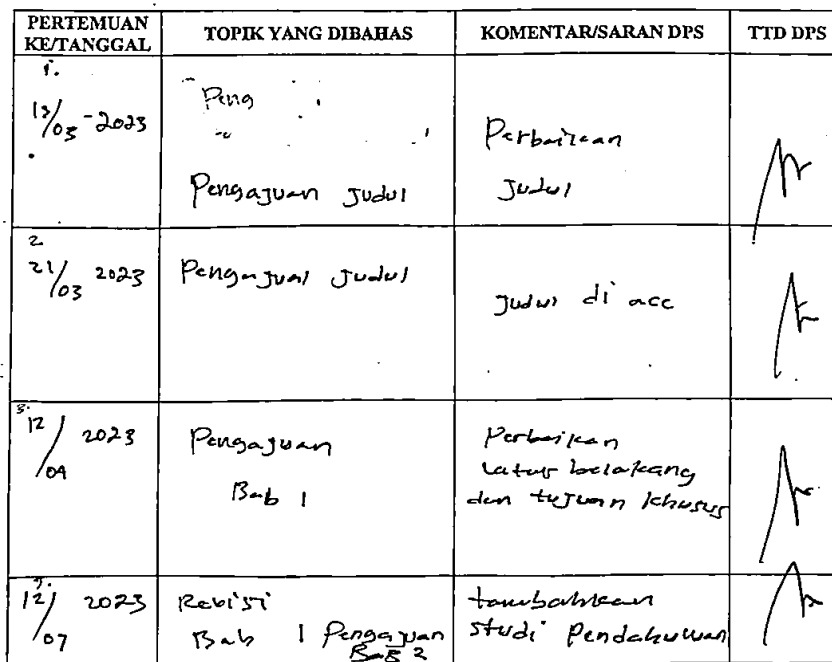 PERTEMUAN KE/TANGGAL
TOPIK YANG DIBAHAS
KOMENTAR/SARAN DPS
TTD DPS
1.
13/03-2023
Peng
Pengajuan Judul
Perbaikan
Judul
2.
21/03 2023
Pengajual Judul
Judul di acc
3.
12/04 2023
Pengajuan
Bab 1
Perbaikan
latar belakang
dan tujuan khusus
12/07 2023
Revisi
Bab 1 Pengajuan
BAB 2
tambahkan
studi Pendahuluan